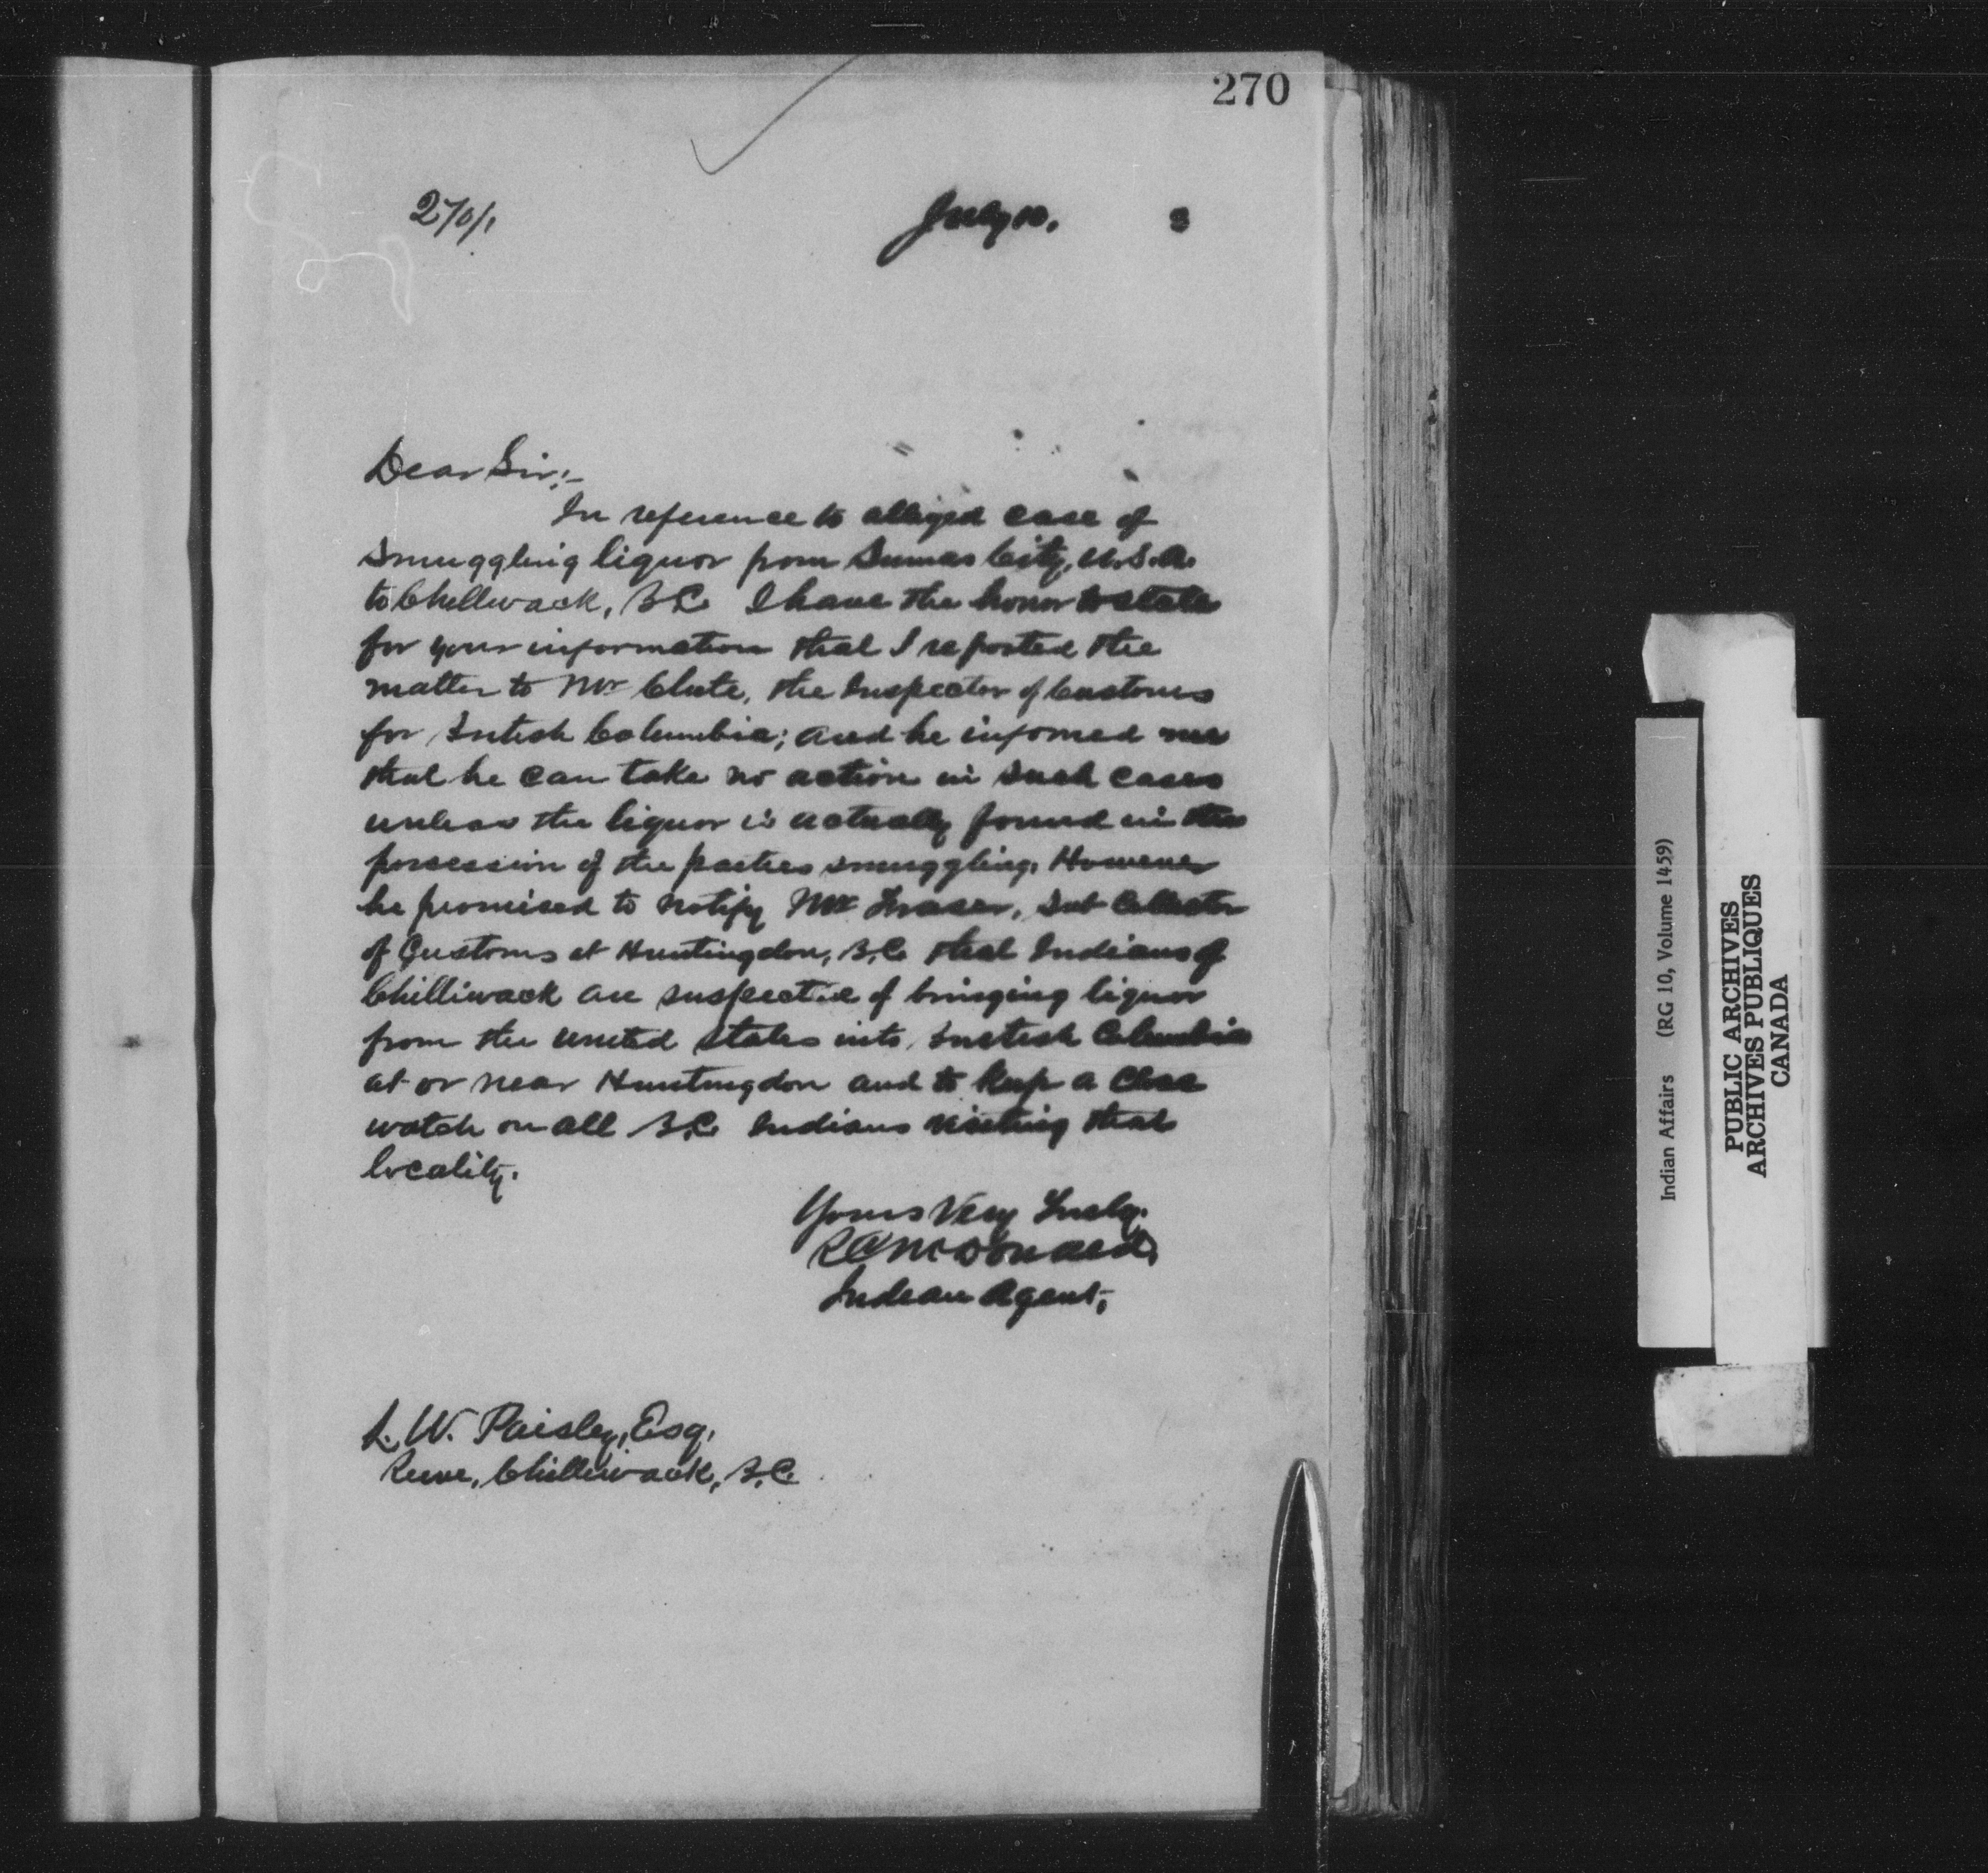 270
270/1 July 10. 8
Dear Sir:-
In reference to alleged case of
smuggling liquor from Sumas City, U.S.A.
to Chilliwack, B.C. I have the honor to state
for your information that I reported the
matter to Mr Clute, the Inspector of Customs
for British Columbia; and he infomed me
that he can take no action in such cases
unless the liquor is actually found in the
possession of the parties smuggling. However
he promised to notify Mr Fraser, Sub Collector
of Customs at Huntingdon, B.C. that Indians of
Chilliwack are suspected of bringing liquor
from the United States into British Columbia
at or near Huntingdon and to keep a close
watch on all B.C. Indians visiting that
locality.
Yours Very Truly.
R C McDonald,
Indian Agent,
L. W. Paisley, Esq.
Reeve, Chilliwack, B.C.
Indian Affairs (RG 10, Volume 1459)
PUBLIC ARCHIVES
ARCHIVES PUBLIQUES
CANADA